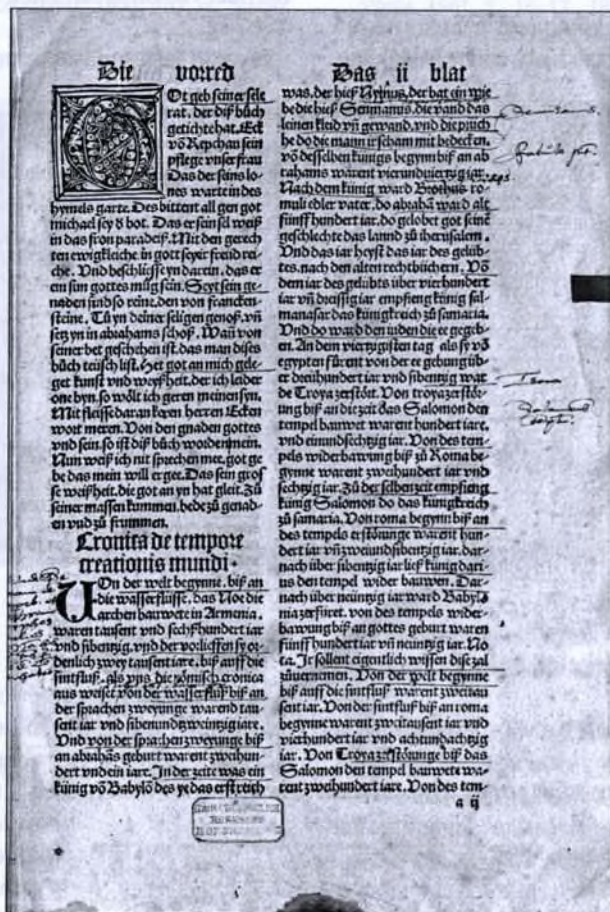 Die vorred
GOt geb seiner sele
rat. der diß bůch
getichtet hat. Eck
võ Repchau sein
pflege vnser frau
Das der seins lo-
nes warte in des
hymels garte. Des bittent all gen got
michael sey d bot. Das er sein sel weiß
in das fron paradeiß. Mit den gerech
ten ewigkleiche. in gottseyner freüd rei-
che. Vnd beschliesse yn darein. das er
ein sun gottes müg sein. Seyt sein ge-
naden sind so reine. den von francken-
steine. Tů yn deiner seligen genoß. vñ
setz yn in abrahams schoß. Wañ von
seiner bet geschehen ist. das man dises
bůch teüsch list. Het got an mich gele-
get kunst vnd weyßheit. der ich leider
one byn. so wölt ich geren meinen syn.
Mit fleisse daran keren herren Ecken
wort meren. Von den gnaden gottes
vnd sein. so ist diß bůch worden mein.
Nun weiß ich nit sprechen mee. got ge
be das mein will ergee. Das sein gros
se weißheit. die got an yn hat gleit. Zů
seiner massen kummen. bede zů genad-
en vnd zů frummen.
Cronica de tempore
creationis mundi.
VOn der welt begynne. biß an
die wasserflüsse. das Noe die
archen bauwete in Armenia.
waren tausent vnd sechßhundert iar
vnd sibentzig. vnd der vorlieffen sy or-
denlich zwey tausent iare. biß auff die
sintfluß. als vns die römisch cronica
aus weiset von der wasserfluß biß an
der sprachen zweyunge warend tau-
sent iar vnd sibenundzweintzig iare.
Vnd von der sprachen zweyunge biß
an abrahãs geburt warent zweihun-
dert vnd ein iare. In der zeite was ein
künig võ Babylõ des ye das erstreich
Das ii blat
was. der hieß Nynus. der hat ein wie
be die hieß Semiramis. die vand das
leinen kleid vñ gewand. vnd die průch
he do die mann ir scham mit bedecken.
võ desselben künigs begynn biß an ab
rahams warent vierundviertzig iar.
Nach dem künig ward Brothus ro-
muli edler vater. do abrahã ward alt
fünffhundert iar. do gelobet got seinẽ
geschlechte das lannd zů iherusalem.
Vnd das iar heyst das iar des gelüb-
tes. nach den alten rechtbüchern. Võ
dem iar des gelübts über vierhundert
iar vñ dreissig iar empfieng künig sal-
manasar das künigkreich zů samaria.
Vnd do ward den iuden die ee gegeb-
en. An dem viertzigsten tag als sy võ
egypten fůrent von der ee gebung üb-
er dreihundert iar vnd sibentzig wart
de Troya zerstört. Von troya zerstör-
ung biß an die zeit das Salomon den
tempel bauwet warent hundert iare.
vnd einundsechtzig iar. Von des tem-
pels widerbawung biß zů Roma be-
gynne warent zweihundert iar vnd
sechtzig iar. Zů der selben zeit empfieng
künig Salomon do das künigkreich
zů samaria. Von roma begynn biß an
des tempels erstörunge waren hun-
dert iar vñ zweiundsibentzig iar. dar-
nach über sibentzig iar ließ künig dari-
us den tempel wider bauwen. Dar-
nach über neüntzig iar ward Babylo
nia zerfüret. von des tempels wider-
bawung biß an gottes geburt waren
fünffhundert iar vñ neüntzig iar. No
ta. Ir sollent eigentlich wissen dise zal
zůuernemen. Von der welt begynne
biß auff die sintfluß warent zweitau
sent iar. Von der sintfluß biß an roma
begynne warent zwritausent iar vnd
vierhundert iar vnd achtundachtzig
iar. Von Troya zerstörunge biß das
Salomon den tempel bauwete wa-
rent zweihundert iare. Von des tem-
a ij